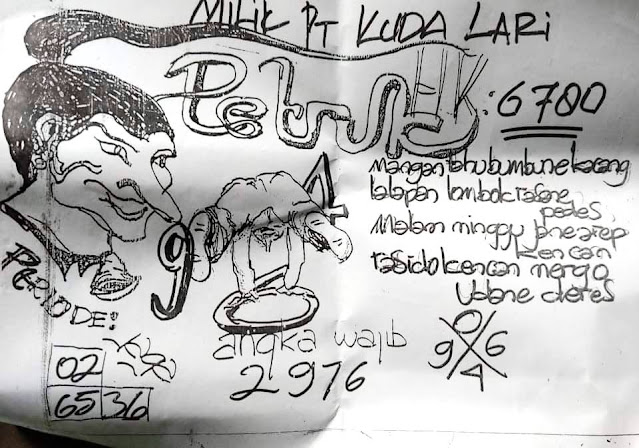 MILIK PT KUDA LARI
Petruk
EK: 6700
Mangan tahu bumbune kacang
lalapan lombok rasane
pedes
Malam minggu jane arep
kencan
rasido kencan mergo
Udane deres
9 4
PERIODE:
angka wajib
2976
0
9 6
4
02
65 36